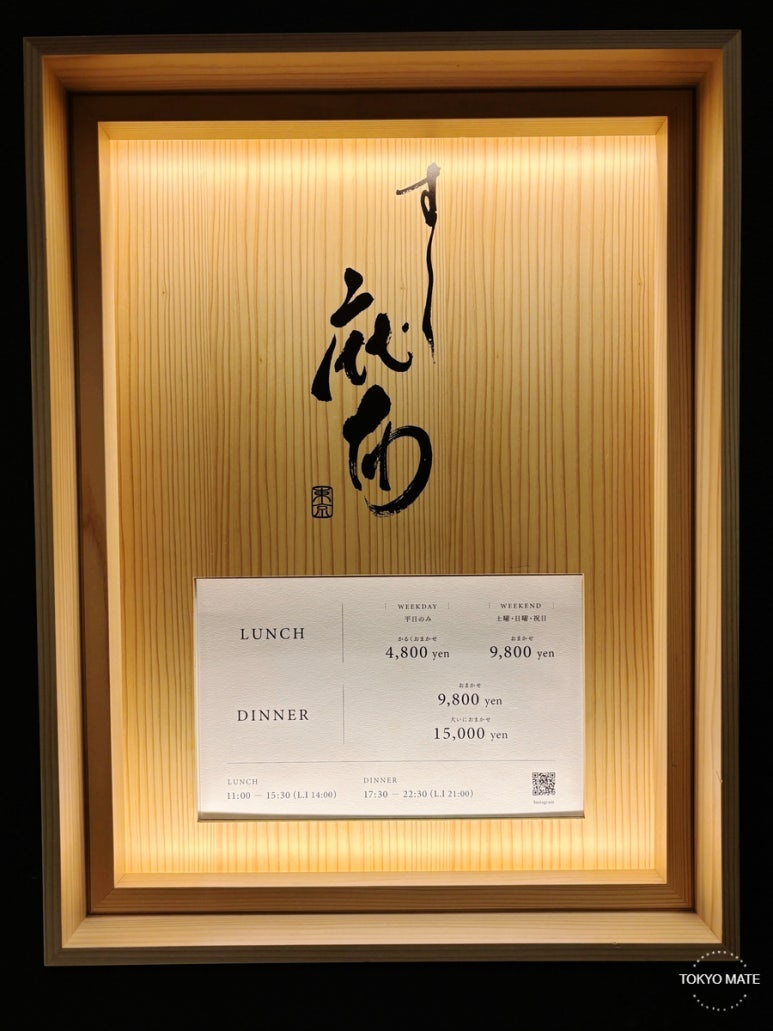 すし
東京
LUNCH
WEEKDAY
平日のみ
かるくおまかせ
4,800 yen
WEEKEND
土曜・日曜・祝日
おまかせ
9,800 yen
DINNER
おまかせ
9,800 yen
大いにおまかせ
15,000 yen
LUNCH
11:00 — 15:30 (L.I 14:00)
DINNER
17:30 — 22:30 (L.I 21:00)
Instagram
TOKYO MATE